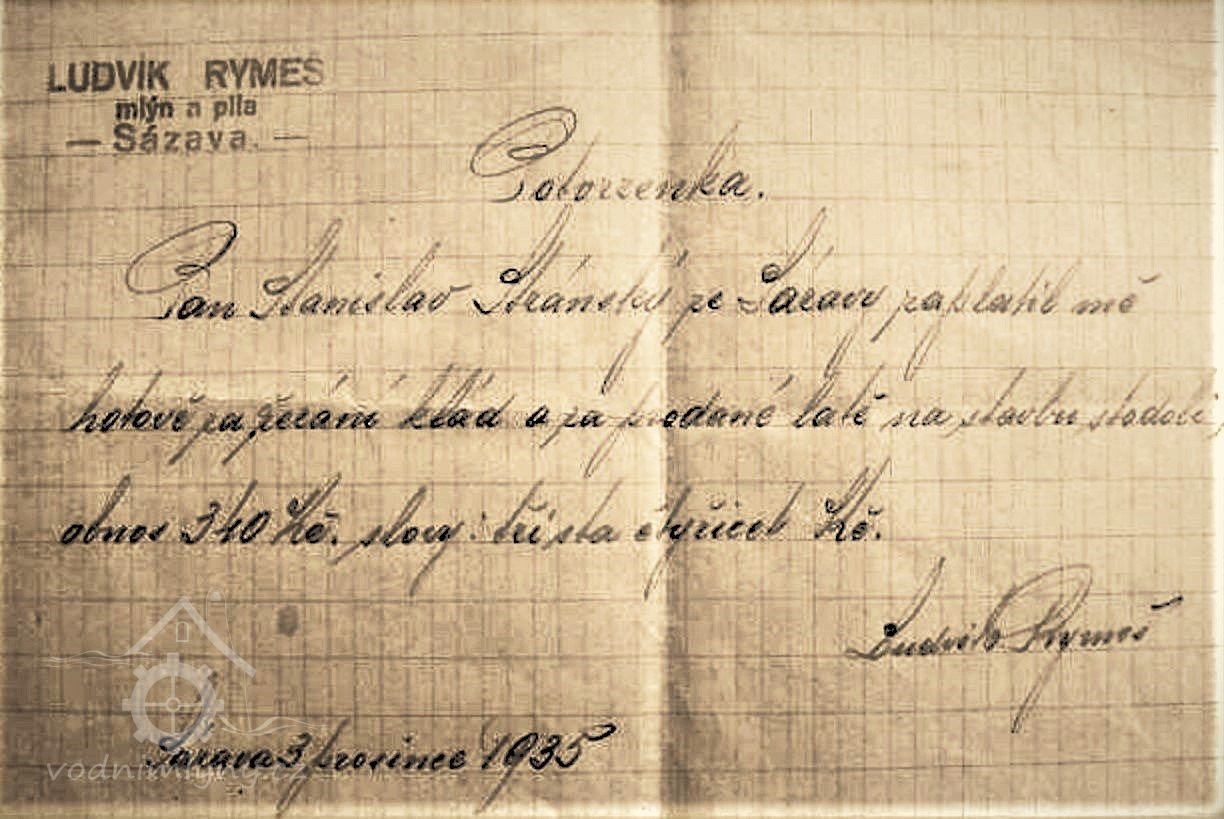 LUDVÍK RYMEŠ
mlýn a pila
— Sázava. —
Potvrzenka.
Pan Stanislav Stránský ze Sázavy zaplatil mě
hotově za řezání klád a za prodané latě na stavbu stodoli,
obnos 340 Kč. slovy: tři sta čtyřicet Kč.
Ludvík Rymeš
Sázava 3 prosince 1935
vodnimlyny.cz